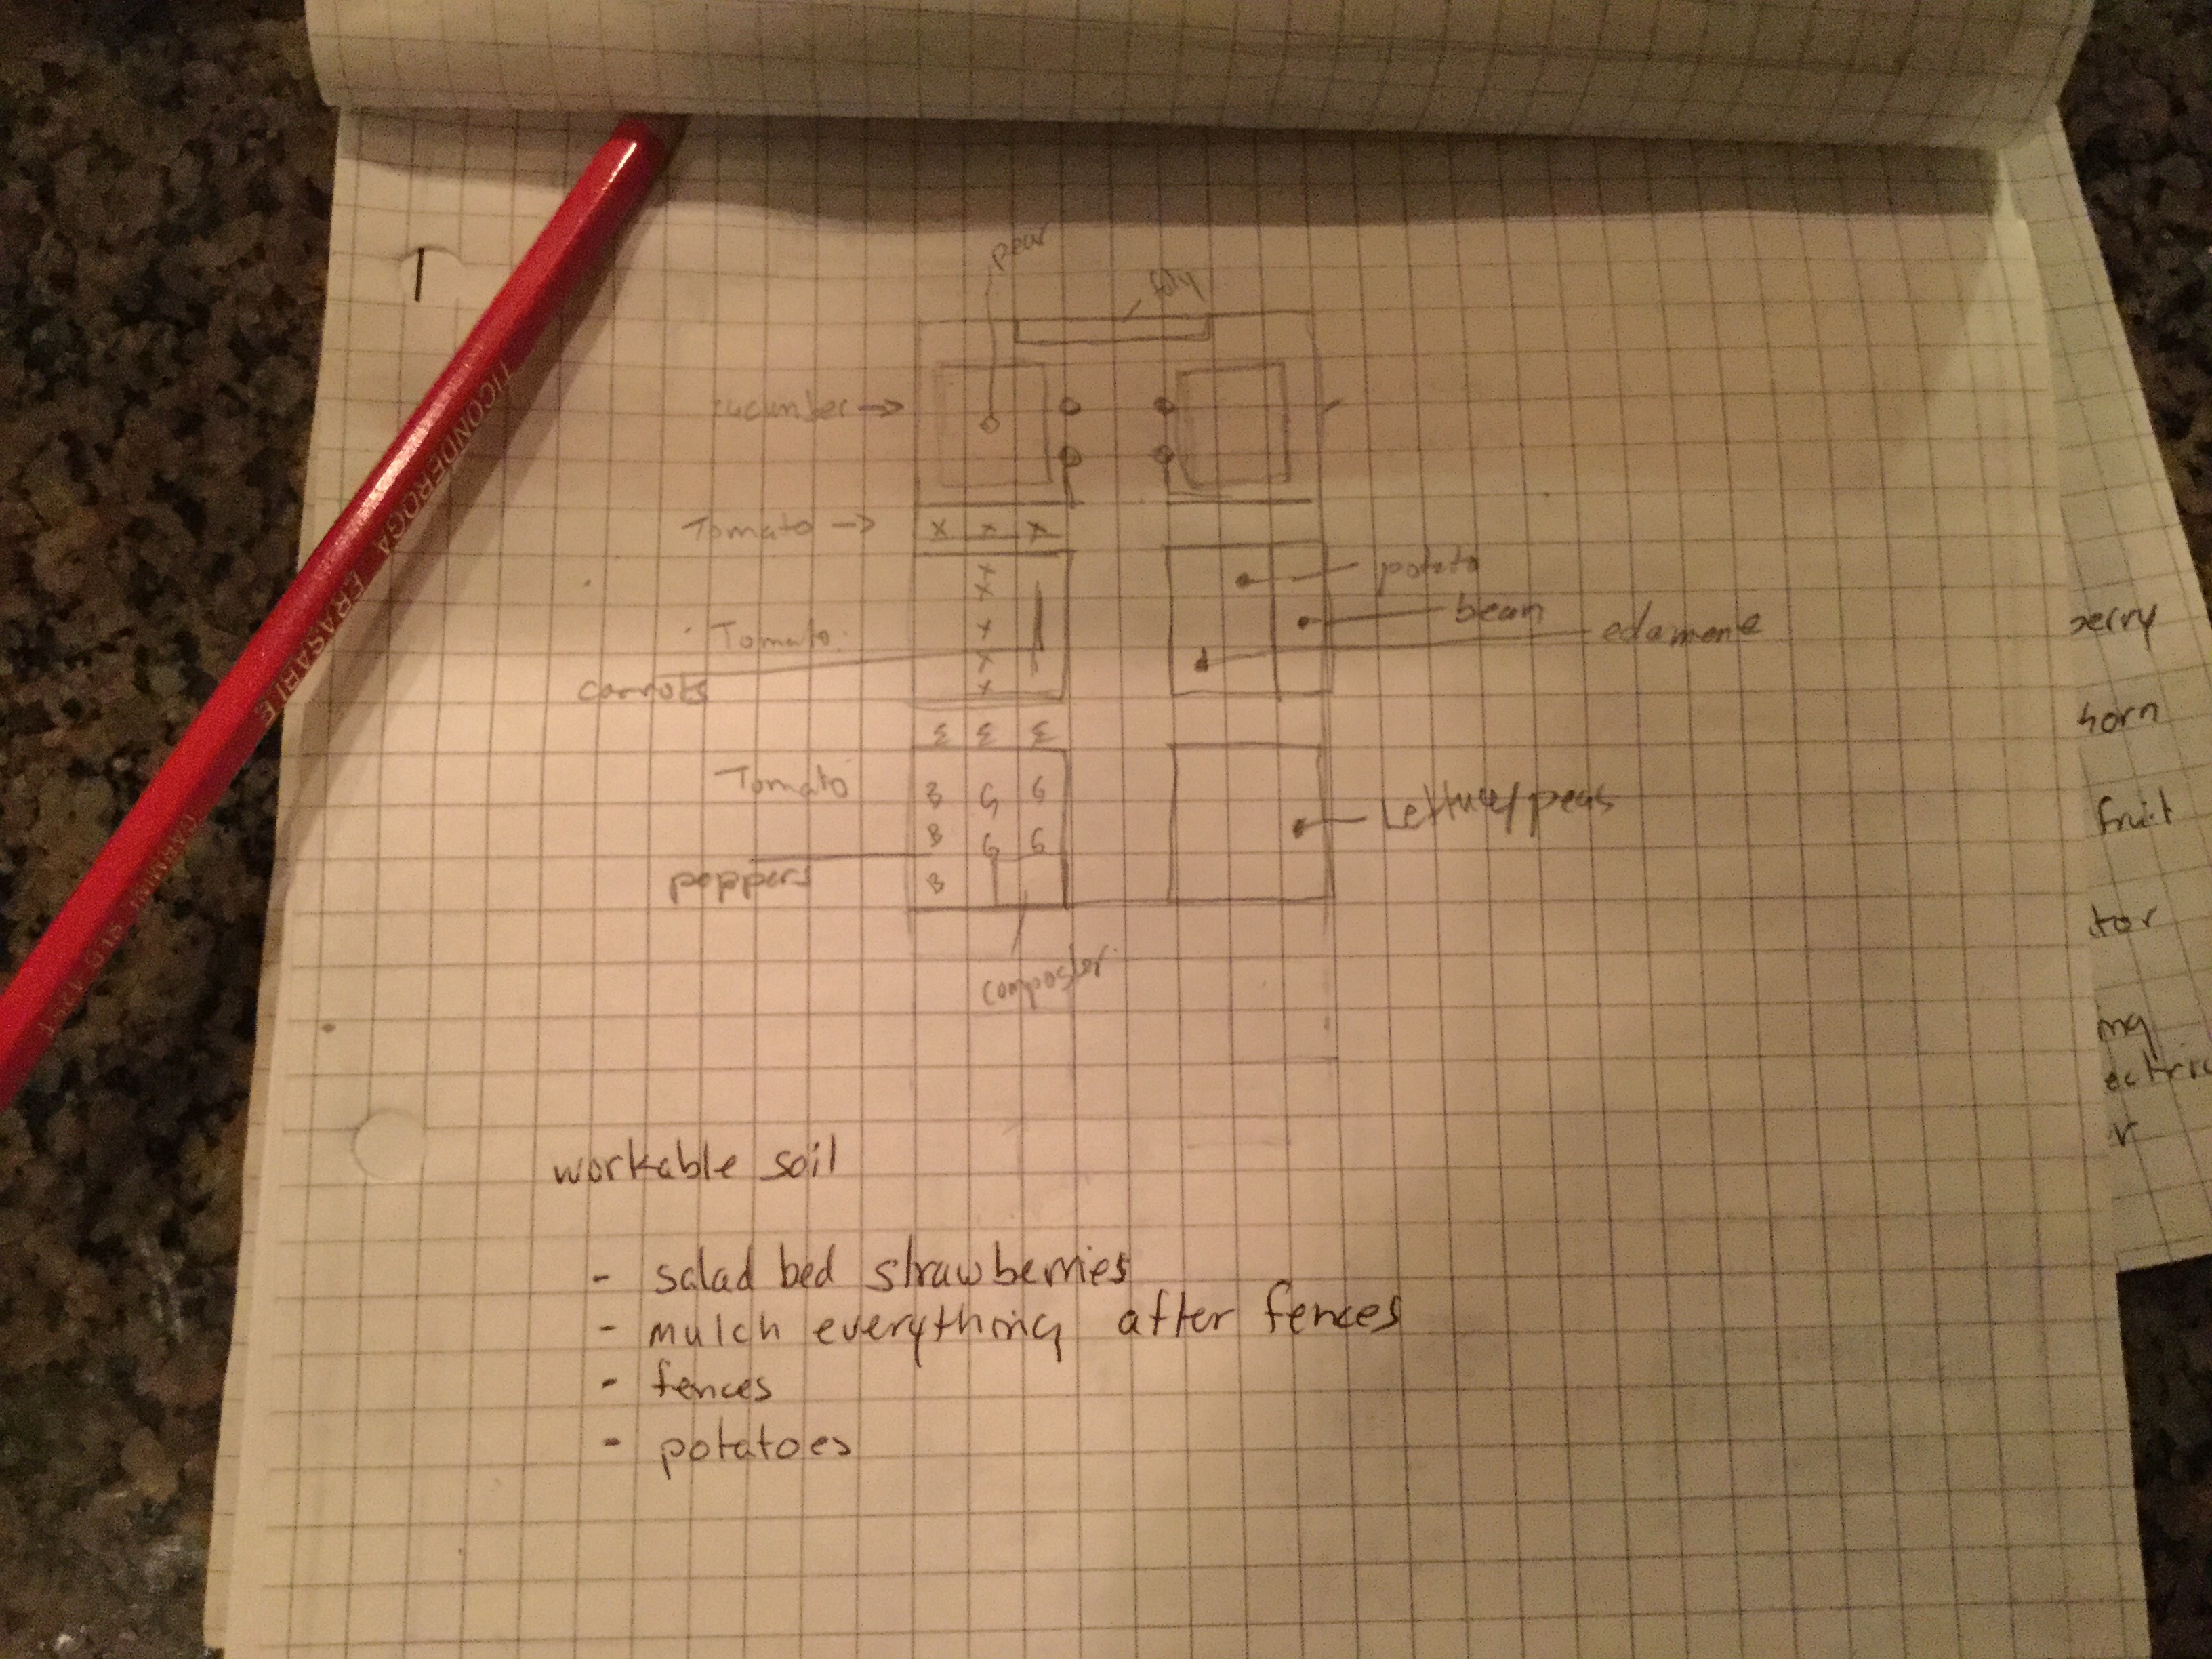 pear
cucumber →
Tomato → x x x
x
x
potato
x
bean
Tomato
edamame
x
carrots
x
Σ Σ Σ
Tomato
B G G
Lettuce/peas
B G G
peppers
B
composter
workable soil
- salad bed strawberries
- mulch everything after fences
- fences
- potatoes
TICONDEROGA ERASABLE
CARMINE RED
erry
horn
fruit
tor
ng
ectric
r